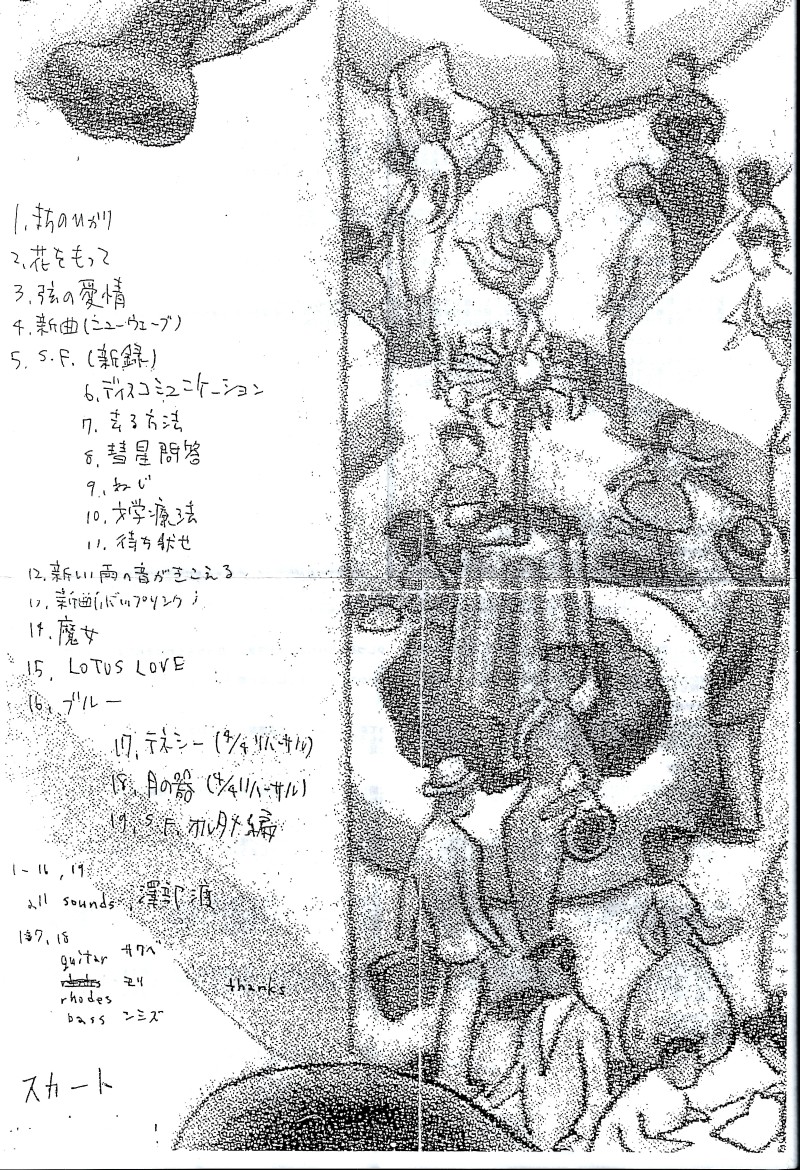 1. まちのひかり
2. 花をもって
3. 弦の愛情
4. 新曲(ニューウェーブ)
5. S.F. (新録)
6. ディスコミュニケーション
7. 去る方法
8. 彗星問答
9. ねじ
10. 文学療法
11. 待ち伏せ
12. 新しい雨の音がきこえる
13. 新曲
14. 魔女
15. LOTUS LOVE
16. ブルー
17. テネシー (4/4リハーサル)
18. 月の器 (4/4リハーサル)
19. S.F. オルタナ編
1-16, 19
all sounds 澤部渡
17, 18
guitar サワベ
モリ
rhodes
thanks
bass シミズ
スカート